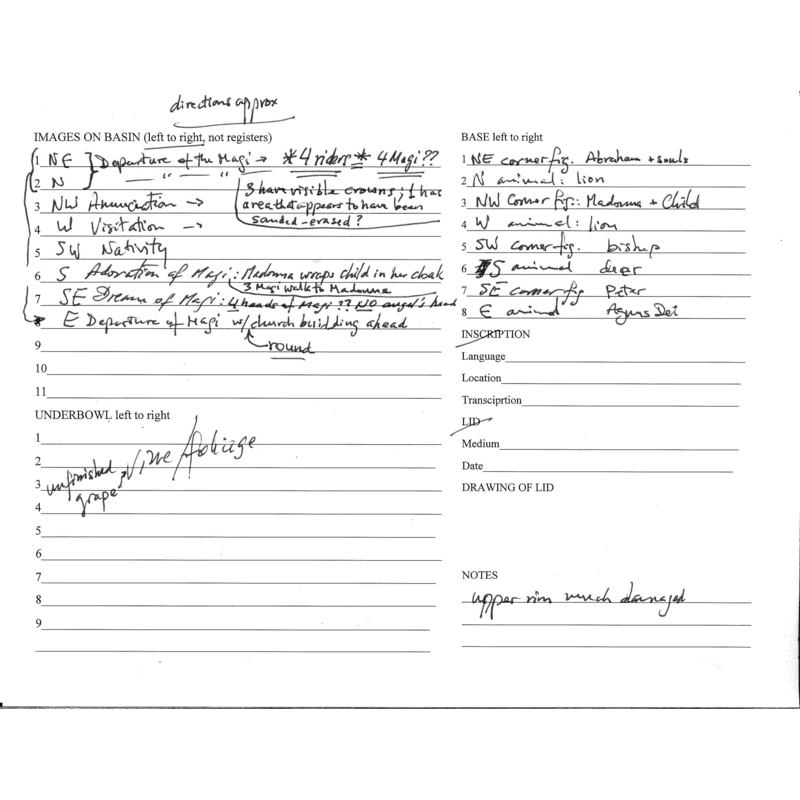 directions approx
IMAGES ON BASIN (left to right, not registers)
1 NE } Departure of the Magi → *4 riders* 4 Magi??
2 N } — " — " —
3 have visible crowns; 1 has
area that appears to have been
sanded-erased?
3 NW Anunciation →
4 W Visitation →
5 SW Nativity
6 S Adoration of Magi: Madonna wraps child in her cloak
3 Magi walk to Madonna
7 SE Dream of Magi: 4 heads of Magi?? NO angel's head
8 E Departure of Magi w/ church building ahead
round
9
10
11
UNDERBOWL left to right
1
2
3
4
Vine/foliage
unfinished
grape
5
6
7
8
9
BASE left to right
1 NE corner fig. Abraham + souls
2 N animal: lion
3 NW Corner fig: Madonna + Child
4 W animal: lion
5 SW corner fig. bishop
6 S animal deer
7 SE corner fig Peter
8 E animal Agnus Dei
INSCRIPTION
Language
Location
Transciprtion
LID
Medium
Date
DRAWING OF LID
NOTES
upper rim much damaged